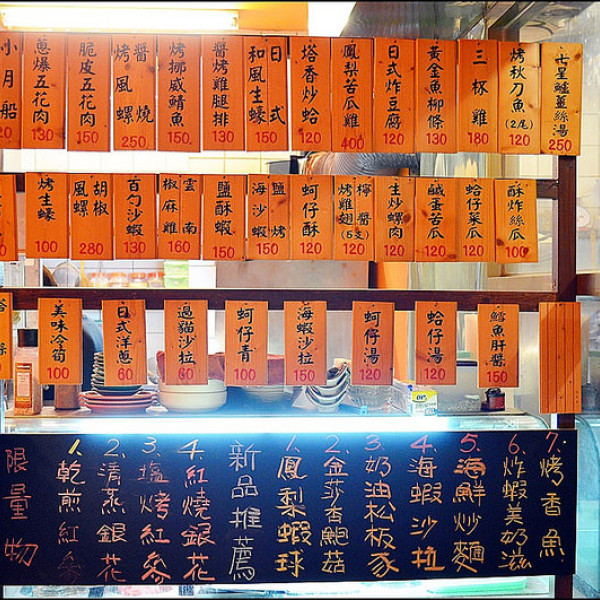 七星鱸薑絲湯 250
烤秋刀魚 (2尾) 120
三杯雞 180
黃金魚柳條 130
日式炸豆腐 120
鳳梨苦瓜雞 400
塔香炒蛤 120
日式和風生蠔 150
醬烤雞腿排 130
烤挪威鯖魚 150
醬燒烤風螺 250
脆皮五花肉 150
蔥爆五花肉 130
小月船
酥炸絲瓜 100
蛤仔菜瓜 120
鹹蛋苦瓜 120
生炒螺肉 120
檸醬烤雞翅 (5支) 120
蚵仔酥 120
鹽烤海沙蝦 150
鹽酥蝦 150
雲南椒麻雞 160
百勺沙蝦 130
胡椒風螺 280
烤生蠔 100
鱈魚肝醬 150
蛤仔湯 120
蚵仔湯 120
海蝦沙拉 150
蚵仔青 100
過貓沙拉 60
日式洋蔥 60
美味冷筍 100
7.烤香魚
6.炸蝦美奶滋
5.海鮮炒麵
4.海蝦沙拉
3.奶油松板豕
2.金莎杏鮑菇
1.鳳梨蝦球
新品推薦
4.紅燒銀花
3.塩烤紅參
2.清蒸銀花
1.乾煎紅參
限量物